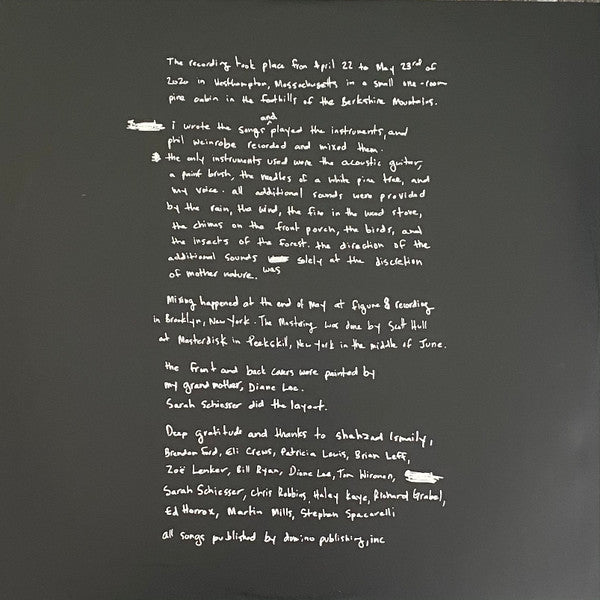 The recording took place from April 22 to May 23rd of
2020 in Westhampton, Massachusetts in a small one-room
pine cabin in the foothills of the Berkshire Mountains.
i wrote the songs and played the instruments, and
phil weinrobe recorded and mixed them.
the only instruments used were the acoustic guitar,
a paint brush, the needles of a white pine tree, and
my voice. all additional sounds were provided
by the rain, the wind, the fire in the wood stove,
the chimes on the front porch, the birds, and
the insects of the forest. the direction of the
additional sounds was solely at the discretion
of mother nature.
Mixing happened at the end of May at figure 8 recording
in Brooklyn, New York. The Mastering was done by Scott Hull
at Masterdisk in Peekskill, New York in the middle of June.
the front and back covers were painted by
my grandmother, Diane Lee.
Sarah Schiesser did the layout.
Deep gratitude and thanks to shahzad Ismaily,
Brandon Ford, Eli Crews, Patricia Lewis, Brian Leff,
Zoë Lenker, Bill Ryan, Diane Lee, Tom Wironen,
Sarah Schiesser, Chris Robbins, Haley Kaye, Richard Grabel,
Ed Horrox, Martin Mills, Stephen Spacarelli
all songs published by domino publishing, inc